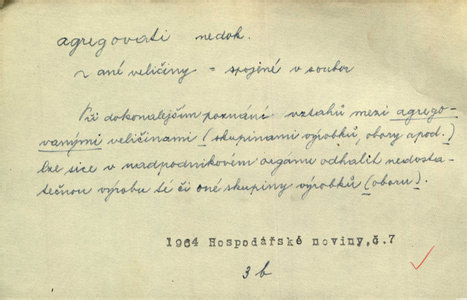 agregovati nedok.
~ané veličiny = spojené v soubor
Při dokonalejším poznání vztahů mezi agrego-
vanými veličinami (skupinami výrobků, obory apod.)
lze sice v nadpodnikovém orgánu odhalit nedosta-
tečnou výrobu té či oné skupiny výrobků (oboru).
1964 Hospodářské noviny, č.7
3 b